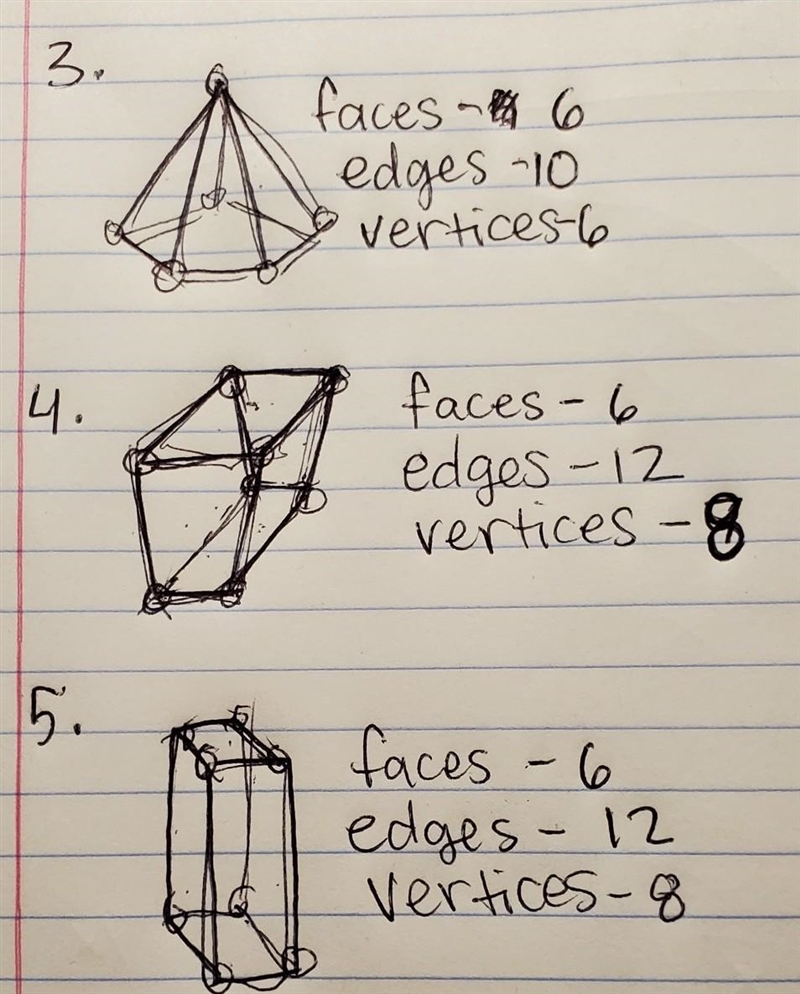 3.
faces - 6
edges - 10
vertices - 6
4.
faces - 6
edges - 12
vertices - 8
5.
faces - 6
edges - 12
vertices - 8